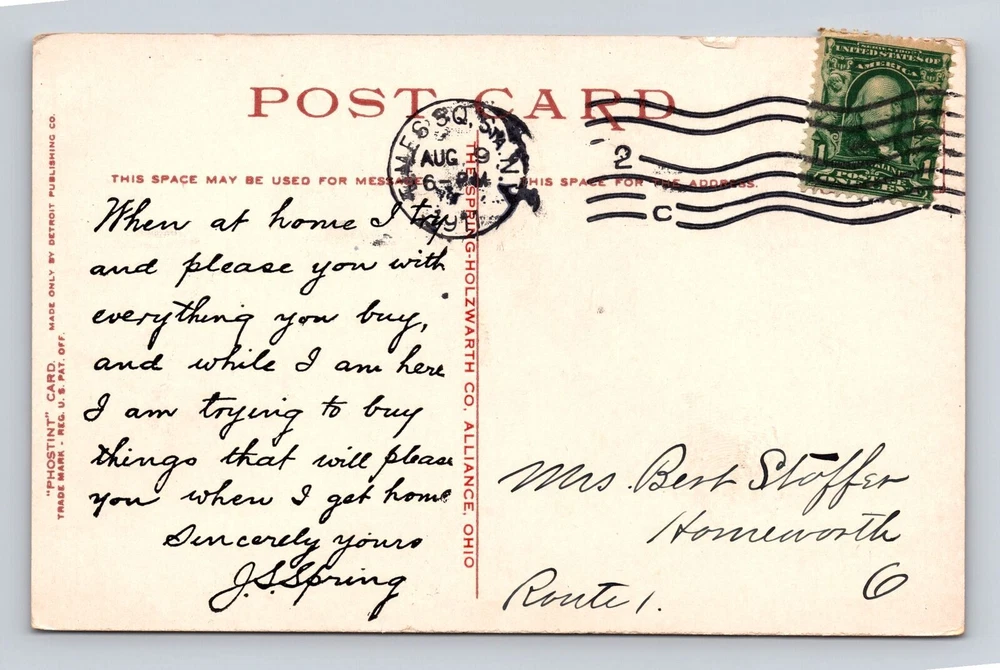 POST CARD
THIS SPACE MAY BE USED FOR MESSAGE
THIS SPACE FOR THE ADDRESS.
SQ. STA. N.Y.
AUG 9
6-PM
191
2
C
SERIES 1902
UNITED STATES OF
AMERICA
1 1
POSTAGE
When at home I try
and please you with
everything you buy,
and while I am here
I am trying to buy
things that will please
you when I get home
Sincerely yours
J.S.Spring
Mrs. Bert Stoffer
Homeworth
Route 1. O
"PHOSTINT" CARD. MADE ONLY BY DETROIT PUBLISHING CO.
TRADE MARK - REG. U. S. PAT. OFF.
THE SPRING-HOLZWARTH CO. ALLIANCE, OHIO